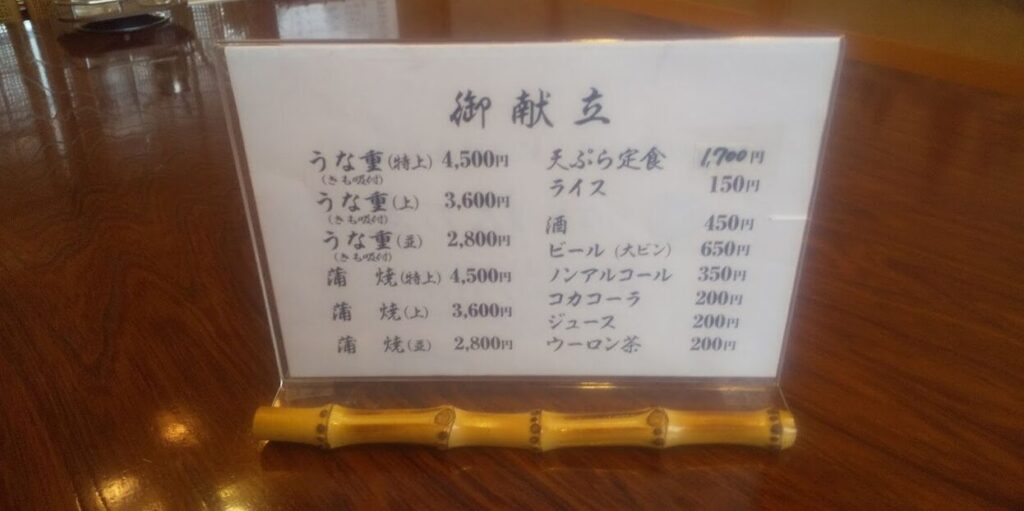 御献立
うな重(特上) 4,500円
(きも吸付)
うな重(上) 3,600円
(きも吸付)
うな重(並) 2,800円
(きも吸付)
蒲焼(特上) 4,500円
蒲焼(上) 3,600円
蒲焼(並) 2,800円
天ぷら定食 1,700円
ライス 150円
酒 450円
ビール(大ビン) 650円
ノンアルコール 350円
コカコーラ 200円
ジュース 200円
ウーロン茶 200円